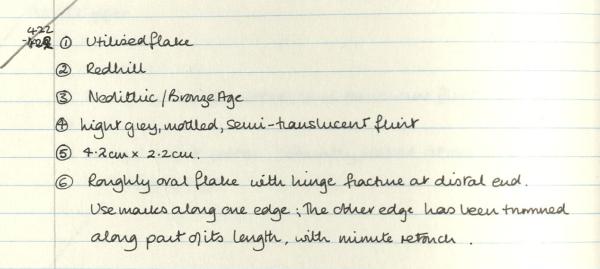 422
① Utilised flake
② Redhill
③ Neolithic / Bronze Age
④ Light grey, mottled, semi-translucent flint
⑤ 4.2cm x 2.2cm.
⑥ Roughly oval flake with hinge fracture at distal end.
Use marks along one edge; The other edge has been trimmed
along part of its length, with minute retouch.